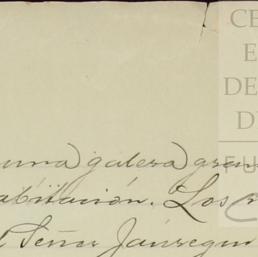 CE
E
DE
D
una galera gran
abitación. Los
Señor Jáuregui
FU